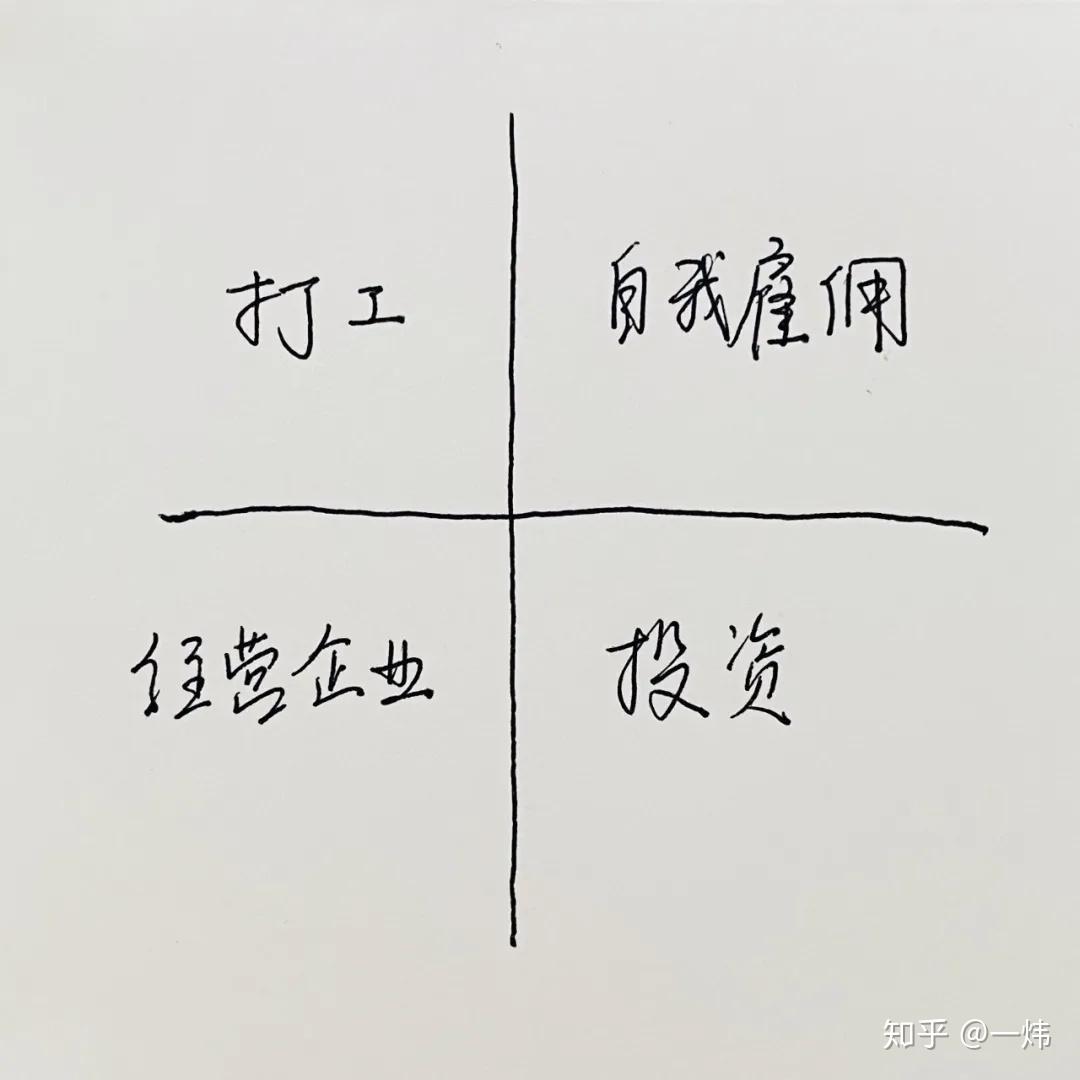 打工
自我雇佣
经营企业
投资
知乎 @一炜